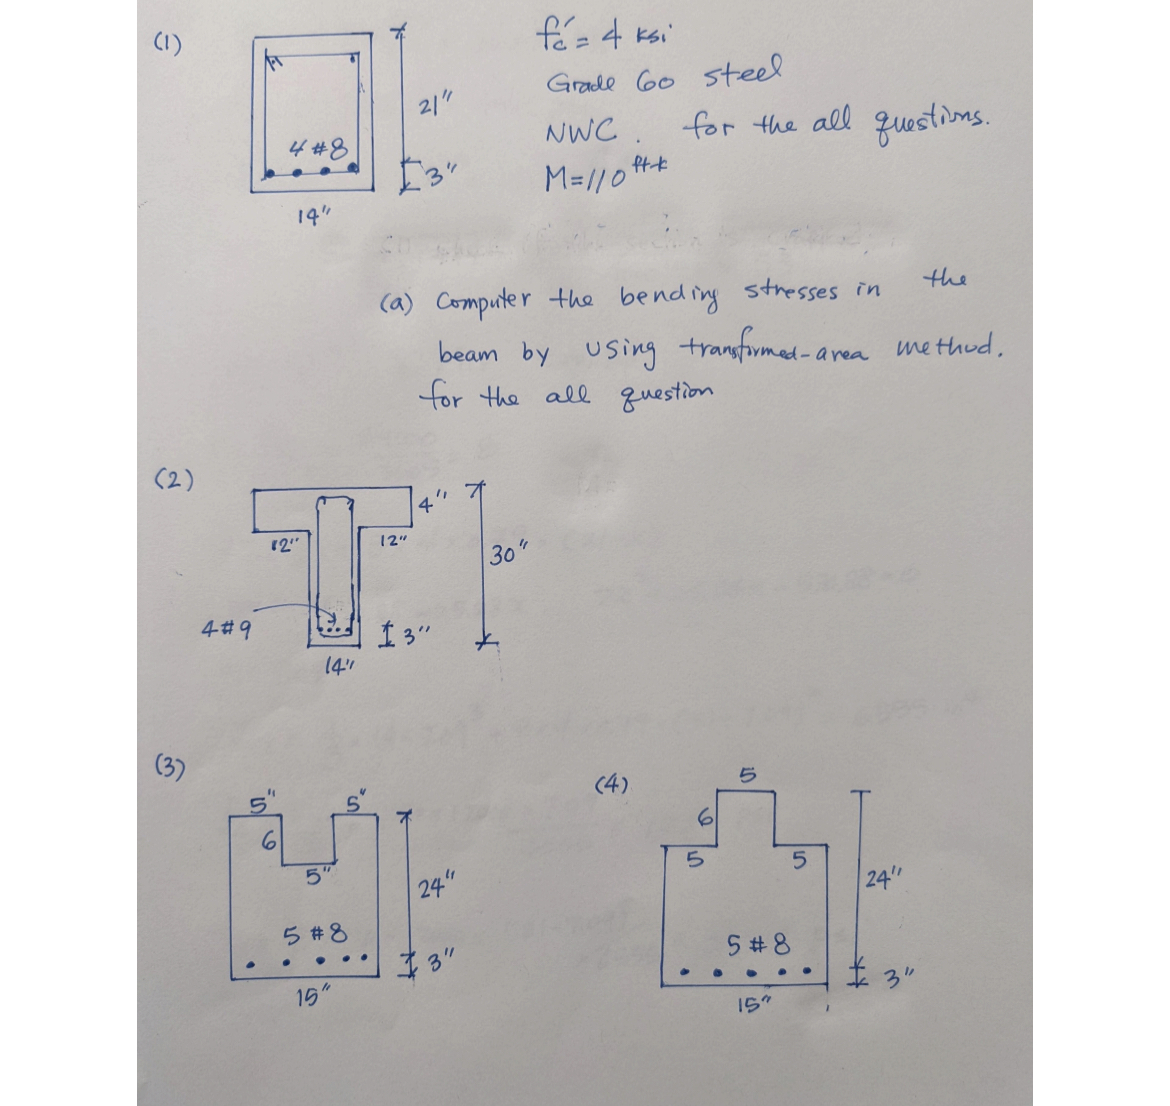 (1)
f'c = 4 ksi
Grade 60 steel
NWC. for the all questions.
M=110 ft-k
21"
4 #8
3"
14"
(a) Computer the bending stresses in the
beam by using transformed-area method.
for the all question
(2)
4"
12"
12"
30"
4#9
3"
14"
(3)
5"
5"
6
5"
24"
5 #8
3"
15"
(4)
5
6
5
5
24"
5 #8
3"
15"